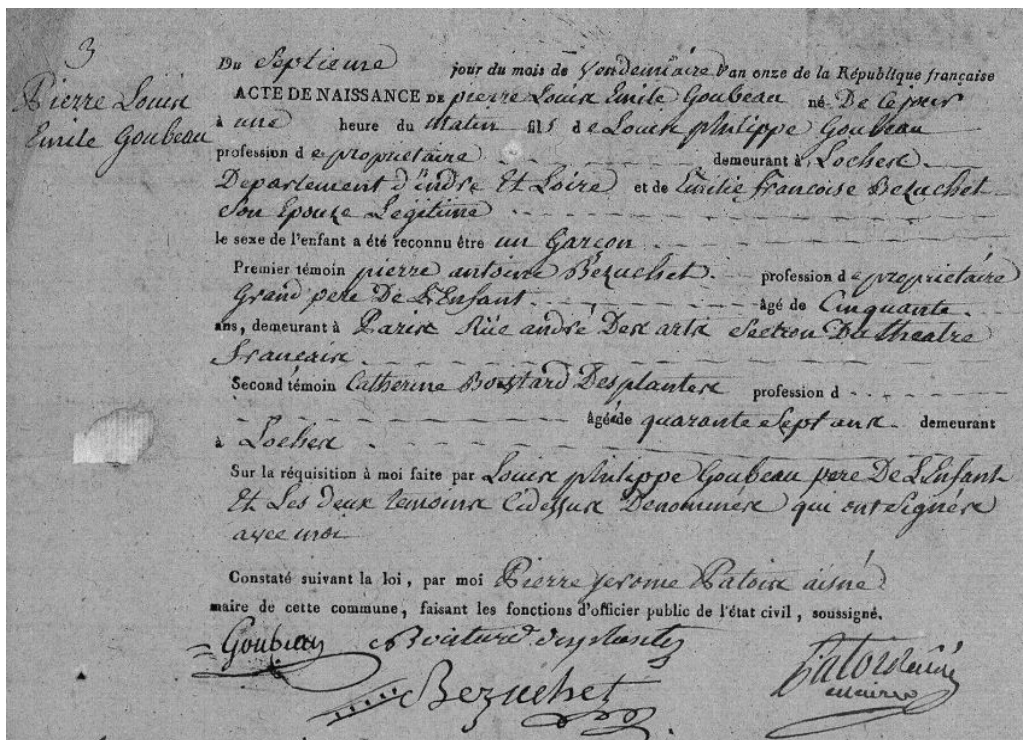 3
Pierre Louis
Emile Goubeau
Du Septieme jour du mois de Vendemiaire l'an onze de la République française
ACTE DE NAISSANCE DE pierre Louis Emile Goubeau né De ce jour
à une heure du Matin fils de Louis philippe Goubeau
profession de proprietaire demeurant à Loches
Departement d'indre Et Loire et de Emilie francoise Bezuchet
Son Epouse Legitime
le sexe de l'enfant a été reconnu être un Garçon
Premier témoin pierre antoine Bézuchet profession de proprietaire
Grand pere De L'Enfant âgé de Cinquante
ans, demeurant à Paris Rüe andré Des arts Section Du theatre
francais
Second témoin Catherine Desplantes profession d
âgée de quarante Sept ans demeurant
à Loches
Sur la réquisition à moi faite par Louis philippe Goubeau pere De L'Enfant
Et Les deux temoins Cidessus Denommés qui ont Signés
avec moi
Constaté suivant la loi, par moi Pierre jerome Patois aisné
maire de cette commune, faisant les fonctions d'officier public de l'état civil, soussigné.
Goubeau
Bezuchet